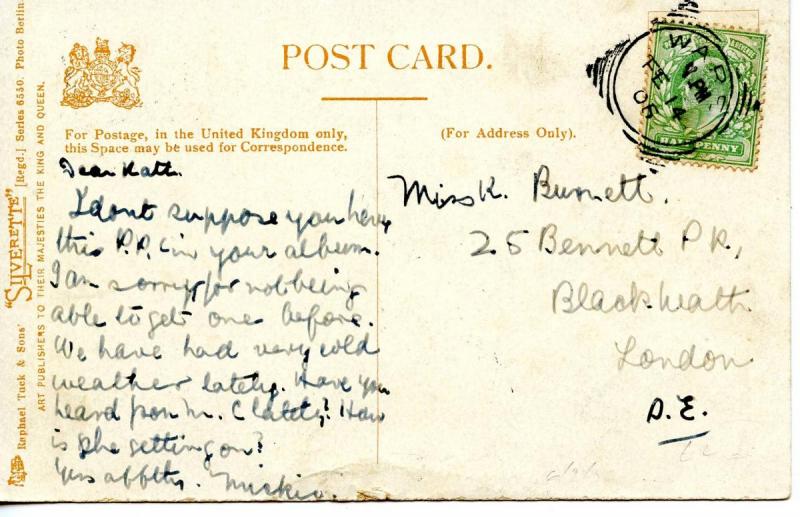 POST CARD.
For Postage, in the United Kingdom only,
this Space may be used for Correspondence.
(For Address Only).
"SILVERETTE"
Raphael Tuck & Sons' [Regd.] Series 6550. Photo Berlin.
ART PUBLISHERS TO THEIR MAJESTIES THE KING AND QUEEN.
WAR
PM
FE 14
05
HALFPENNY
Dear Kath.
I dont suppose you have
this P.P.C in your album.
I am sorry for not being
able to get one before.
We have had very cold
weather lately. Have you
heard from M. C lately? How
is she getting on?
Yrs affectly.
Miss K. Burnett.
25 Bennett PK,
Blackheath
London
S.E.